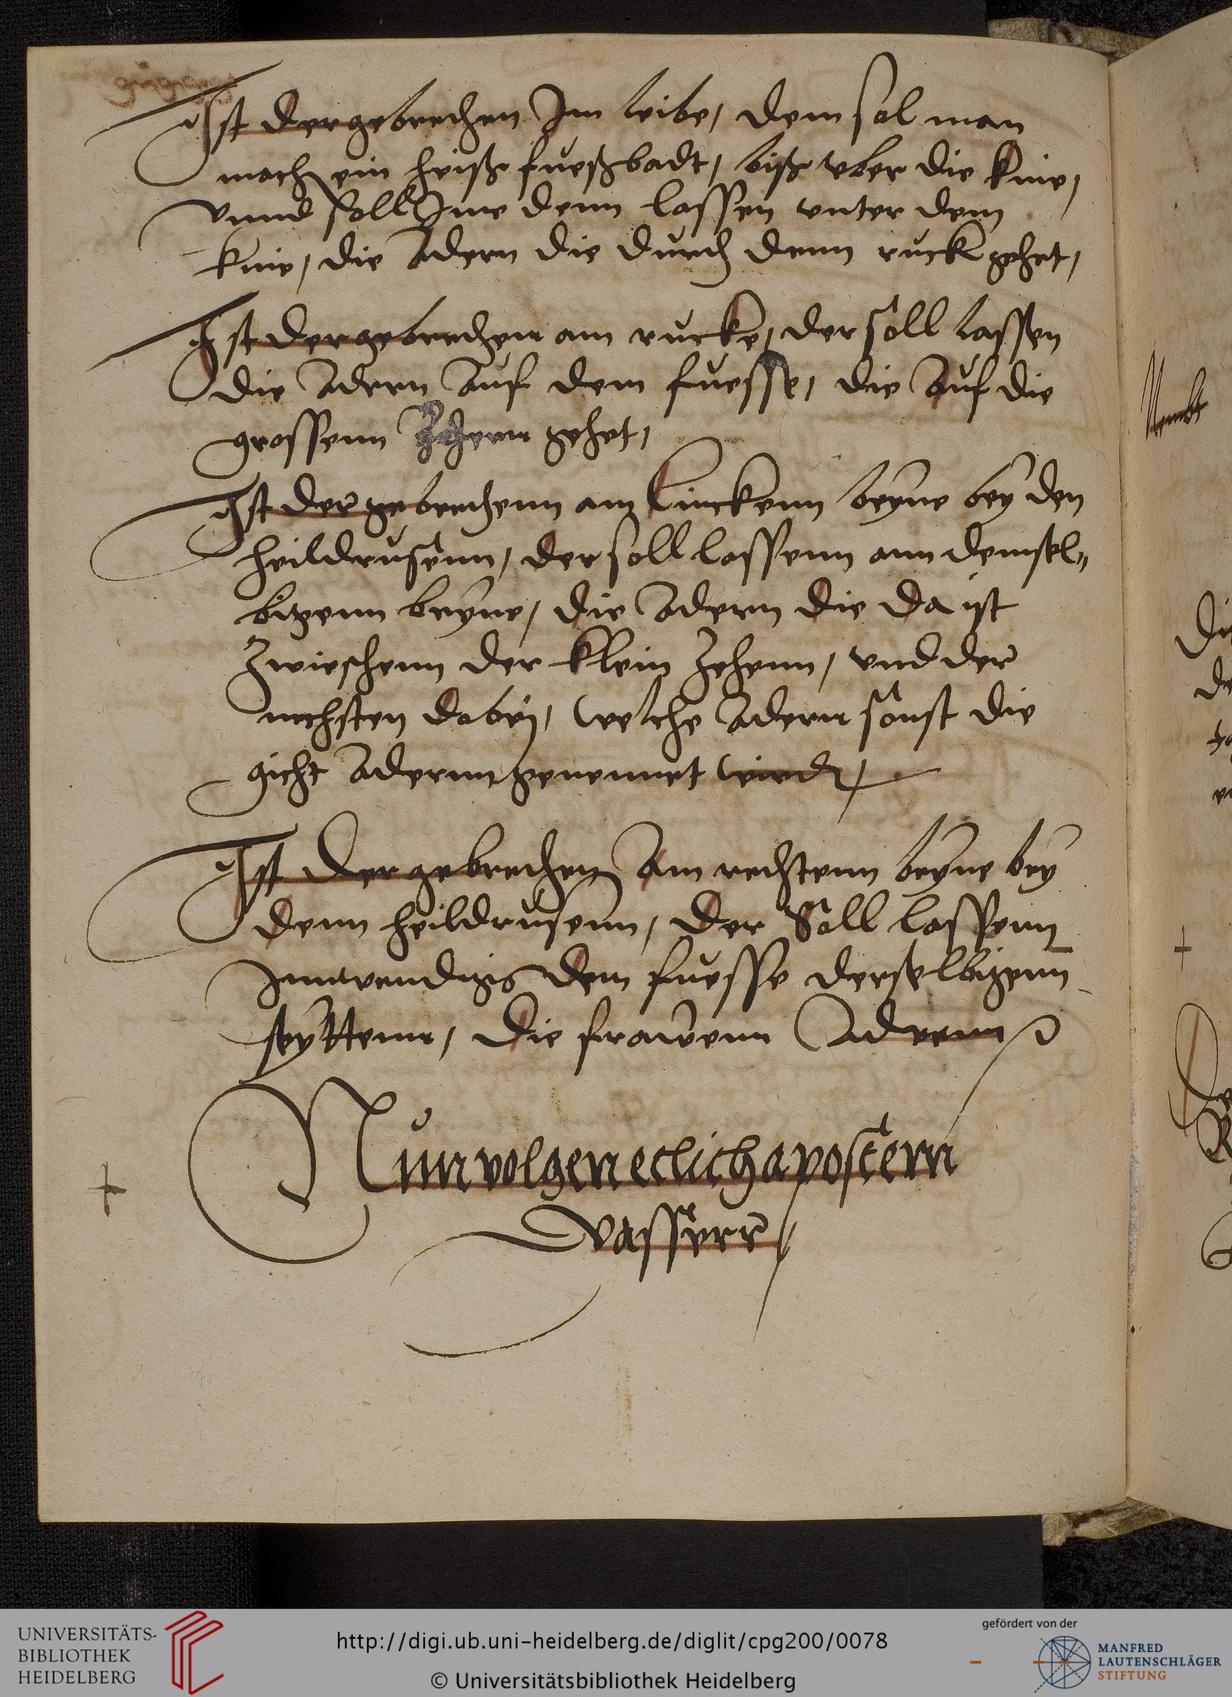 Ist der gebrechen Im leibe, dem sol man
mach ein heiß fuessbadt, biß vber die knie,
vnnd soll Ime denn lassen vnter dem
knie, die Adern die durch denn ruck gehet,
Ist der gebrechen am rucke, der soll lassen
die Adern Auf dem fuesse, die Auf die
grossenn Zehenn gehet,
Ist der gebrechenn am linckenn beyne bey den
heildrusenn, der soll lassenn ann demsel„
bigenn beyne, die Adern die da ist
Zwieschenn der klein Zehenn, vnd der
nechsten dabey, welche Adern sonst die
gicht Adernn genennet wirdt,
Ist der gebrechen Am rechtenn beyne bey
denn heildrusenn, der Soll lassenn
Innwendigs dem fuesse derselbigenn
seyttenn, die frawenn Adernn
Nun volgen etlich apostem
wasser,
Die
+
+
http://digi.ub.uni-heidelberg.de/diglit/cpg200/0078
© Universitätsbibliothek Heidelberg
UNIVERSITÄTS-
BIBLIOTHEK
HEIDELBERG
gefördert von der
MANFRED
LAUTENSCHLÄGER
STIFTUNG